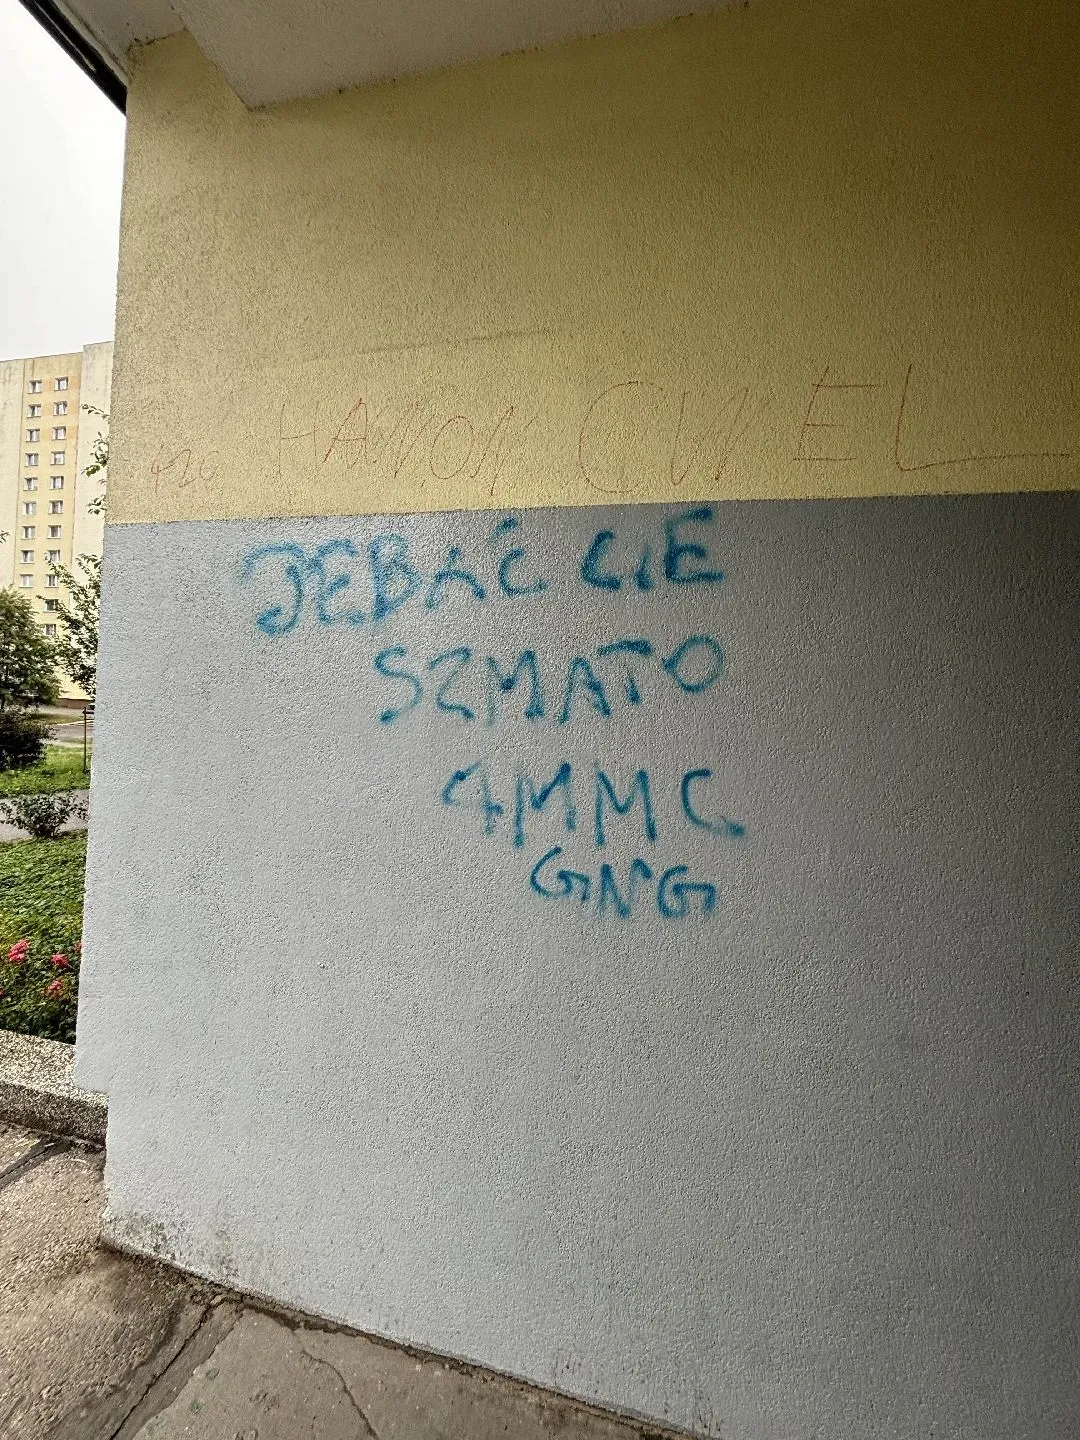 420 HAMON CWEL
JEBAĆ CIE
SZMATO
4MMC
GNG